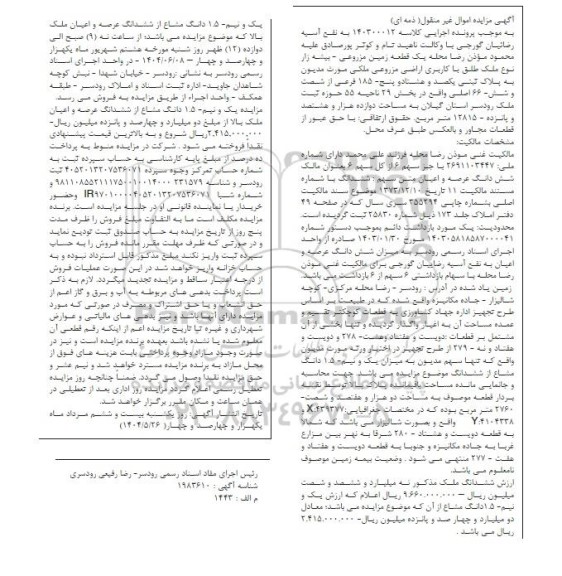 آگهی مزایده اموال غیر منقول( ذمه ای)
به موجب پرونده اجرایی کلاسه ۱۴۰۳۰۰۰۱۲ به نفع آسیه
رضائیان گورجی با وکالت ناهید تمام و کوثر پورصادق علیه
محمود مؤذن رضا محله یک قطعه زمین مزروعی - بیته زار
نوع ملک طلق با کاربری اراضی مزروعی ملکی مورث مدیون
به پلاک ثبتی یکصد و هشتادو پنج- ۱۸۵ فرعی از شصت
و شش- ۶۶ اصلی واقع در بخش ۲۹ ناحیه ۵۵ حوزه ثبت
ملک رودسر استان گیلان به مساحت دوازده هزار و هشتصد
و پانزده - ۱۲۸۱۵ متر مربع. حقوق ارتفاقی: با حق عبور از
قطعات مجاور و بالعکس طبق عرف محل.
مشخصات مالکیت:
مالکیت غنی موذن رضا محله فرزند علی محمد دارای شماره
ملی: ۲۶۹۱۱۰۳۴۴۷ با جز سهم ۶ از کل سهم ۶ بعنوان مالک
شش دانگ عرصه و اعیان متن سهم : ششدانگ با شماره
مستند مالکیت ۱۱ تاریخ ۱۳۷۳/۱۲/۱۰ موضوع سند مالکیت
اصلی بشماره چاپی ۳۵۵۲۹۴ سری سال که در صفحه ۴۹
دفتر املاک جلد ۱۷۳ ذیل شماره ۲۵۸۳۰ ثبت گردیده است.
محدودیت: یک مورد بازداشت دائم بموجب دستور شماره
۱۴۰۳۰۵۸۱۸۵۸۷۰۰۰۰۴۱ مورخ ۱۴۰۳/۰۱/۳۰ صادره از واحد
اجرای اسناد رسمی رودسر به میزان شش دانگ عرصه و
اعیان به نفع آسیه رضائیان گورجی برای مالکیت غنی موذن
رضا محله با سهام بازداشتی ۶ سهم از ۶ بازداشت می باشد.
زمین یاد شده در آدرس : رودسر - رضا محله مرکزی- کوچه
شالیزار - جاده مکانیزه واقع شده که در طبیعت بر اساس
طرح تجهیز اداره جهاد کشاورزی به قطعات کوچکتر تقسیم و
عمده مساحت آن به اغیار واگذار گردیده و تنها بخشی از آن
مشتمل بر قطعات :دویست و هفتاد وهشت- ۲۷۸ و دویست و
هفتاد و نه - ۲۷۹ از طرح تجهیز در اختیار ورثه مورث مدیون
واقع که تنها سهم مدیون به میزان یک و نیم- ۱.۵ دانگ
مشاع از ششدانگ موضوع مزایده می باشد. جهت محاسبه
پردار قطعه موصوف به مساحت دو هزار و هفتصد و شصت-
۲۷۶۰ متر مربع بوده که در مختصات جغرافیایی:۴۳۹۳۷۷-X
Y:۴۱۰۴۳۳۸ واقع و بصورت شالیزار می باشد که شمالا
به قطعه دویست و هشتاد - ۲۸۰ شرقا به نهر بین مزارع
غربا به جاده مکانیزه و جنوبا به قطعه دویست و هفتاد و
هفت - ۲۷۷ منتهی می شود . وضعیت بیمه زمین موصوف
نامعلوم می باشد.
ارزش ششدانگ ملک مذکور نه میلیارد و ششصد و شصت
میلیون ریال - ۹.۶۶۰.۰۰۰.۰۰۰ ریال اعلام که ارزش یک و
نیم- ۱.۵دانگ مشاع از آن که موضوع مزایده می باشد؛ معادل
دو میلیارد و چهار صد و پانزده میلیون ریال- ۲.۴۱۵.۰۰۰.۰۰۰
ریال می باشد .
یک و نیم- ۱.۵ دانگ مشاع از ششدانگ عرصه و اعیان ملک
بالا که موضوع مزایده می باشد؛ از ساعت نه (۹) صبح الی
دوازده (۱۲) ظهر روز شنبه مورخه هشتم شهریور ماه یکهزار
و چهارصد و چهار – ۱۴۰۴/۰۶/۰۸ - در واحد اجرای اسناد
رسمی رودسر به نشانی :رودسر - خیابان شهدا - نبش کوچه
شاهدان جاوید- اداره ثبت اسناد و املاک رودسر - طبقه
همکف - واحد اجراء از طریق مزایده به فروش می رسد.
مزایده یک و نیم- ۱.۵ دانگ مشاع از ششدانگ عرصه و اعیان
ملک بالا از مبلغ دو میلیارد و چهارصد و پانزده میلیون ریال-
۲.۴۱۵.۰۰۰.۰۰۰ریال شروع و به بالاترین قیمت پیشنهادی
نقدا فروخته می شود . شرکت در مزایده منوط به پرداخت
ده درصد از مبلغ پایه کارشناسی به حساب سپرده ثبت به
شماره حساب تمرکز وجوه سپرده ۴۰۵۲۰۱۳۲۰۷۵۳۶۰۷۱ ثبت
رودسر و شناسه
شماره شبا
خریدار یا نماینده قانونی او در جلسه مزایده است. برنده
مزایده مکلف است ما به التفاوت مبلغ فروش را ظرف مدت
پنج روز از تاریخ مزایده به حساب صندوق ثبت تودیع نماید
و در صورتی که ظرف مهلت مقرر مانده فروش را به حساب
سپرده ثبت واریز نکند مبلغ مذکور قابل استرداد نبوده و به
حساب خزانه واریز خواهد شد در این صورت عملیات فروش
از درجه اعتبار ساقط و مزایده تجدید میگردد. لازم به ذکر
است پرداخت بدهی های مربوطه به آب و برق و گاز اعم از
حق انشعاب و یا حق اشتراک و مصرف در صورتی که مورد
مزایده دارای آنها باشد و نیز بدهی های مالیاتی و عوارض
شهرداری و غیره تا تاریخ مزایده اعم از اینکه رقم قطعی آن
معلوم شده یا نشده باشد بعهده برنده مزایده است و نیز در
صورت وجود مازاد وجوه پرداختی بابت هزینه های فوق از
محل مازاد به برنده مزایده مسترد خواهد شد و نیم عشر و
حق مزایده نقدا وصول می گردد. ضمنا چنانچه روز مزایده
تعطیل رسمی اعلام گردد مزایده روز اداری بعد از تعطیلی در
همان ساعت و مکان مقرر برگزار خواهد شد.
تاریخ انتشار آگهی: روز یکشنبه بیست و ششم مرداد ماه
یکهزار و چهارصد و چهار( ۱۴۰۴/۵/۲۶)
رئیس اجرای مفاد اسناد رسمی رودسر- رضا رفیعی رودسری
شناسه آگهی : ۱۹۸۳۶۱۰
م الف : ۱۴۴۳